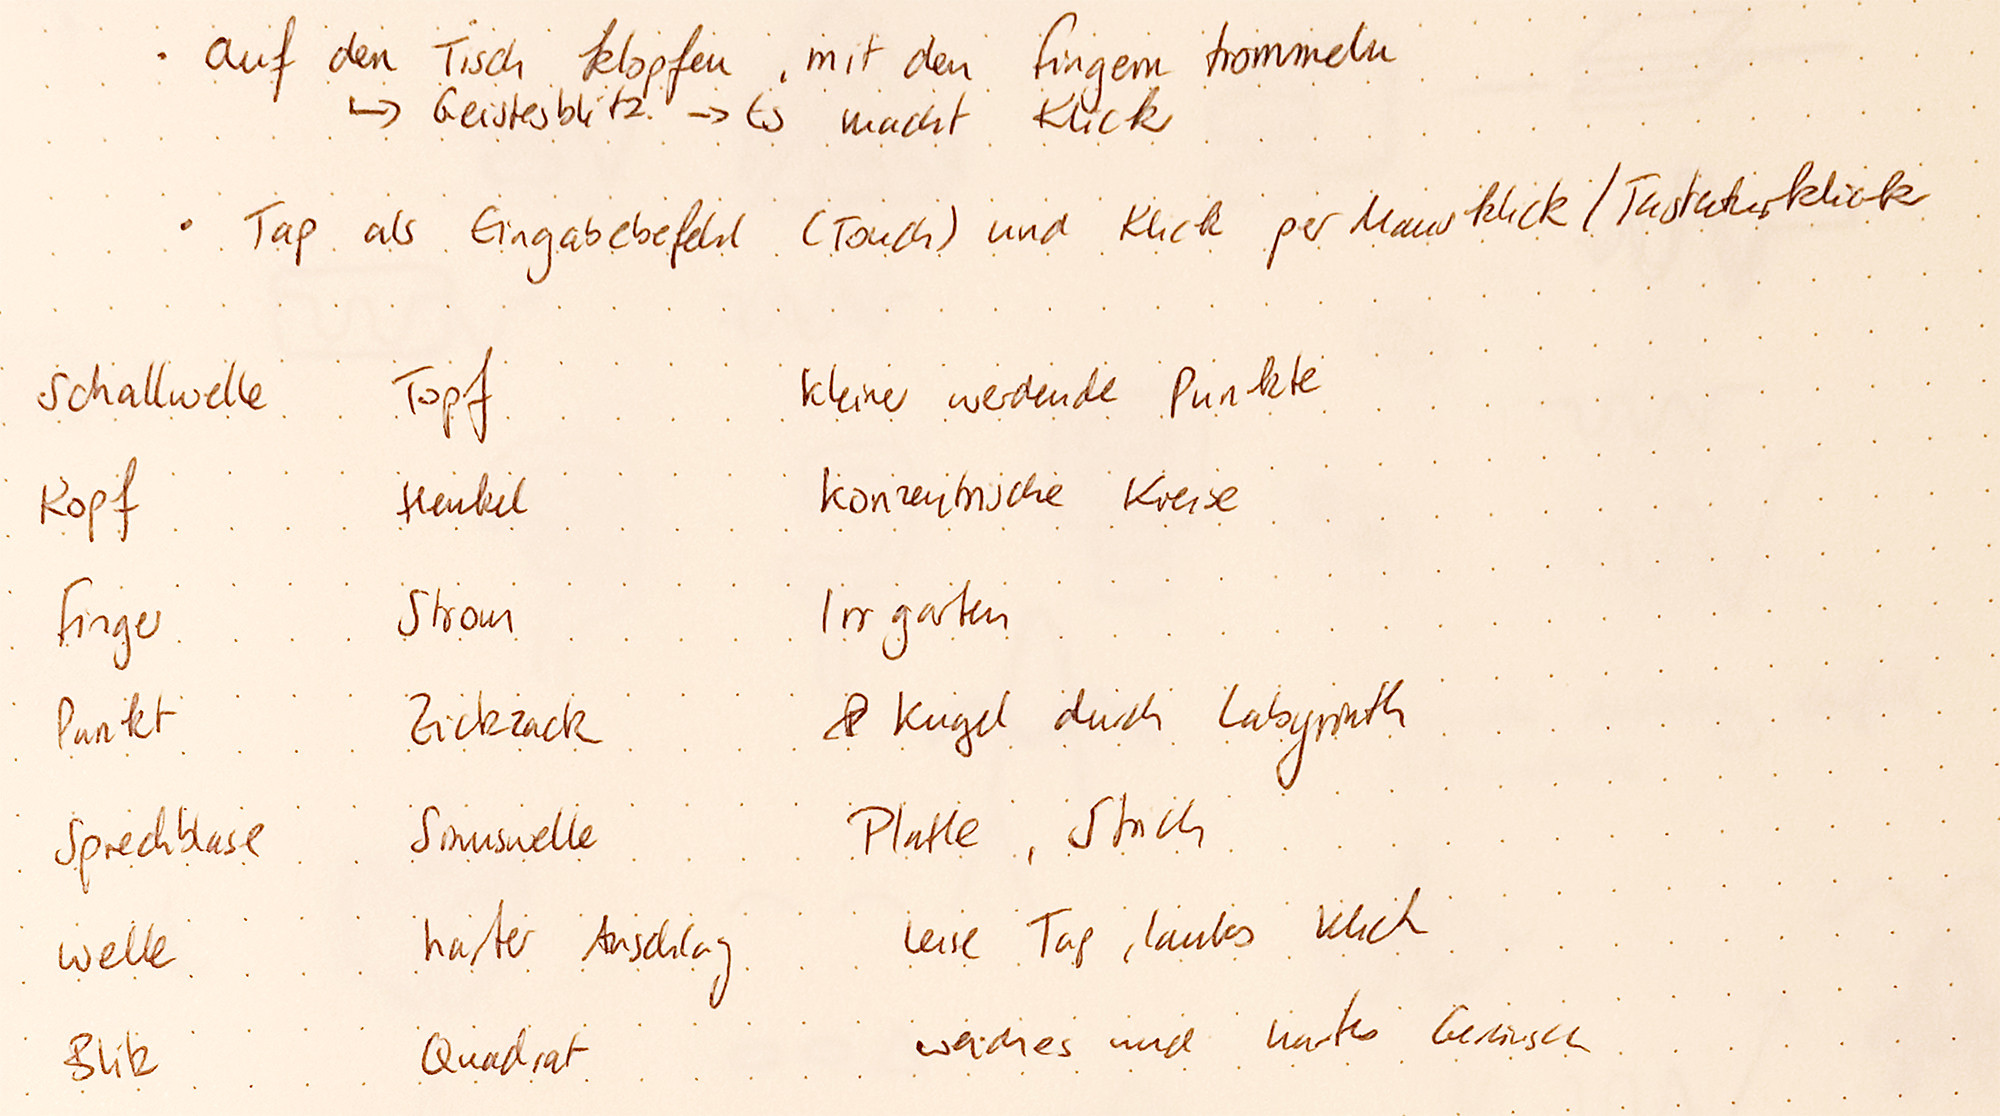 · auf den Tisch klopfen, mit den Fingern trommeln
↳ Geistesblitz. → Es macht Klick
· Tap als Eingabebefehl (Touch) und Klick per Mausklick / Tastaturklick
Schallwelle Topf kleiner werdende Punkte
Kopf Henkel konzentrische Kreise
Finger Strom Irrgarten
Punkt Zickzack Kugel durch Labyrinth
Sprechblase Sinuswelle Platte, Strich
Welle harter Anschlag leise Tap, lautes Klick
Blitz Quadrat weiches und hartes Geräusch